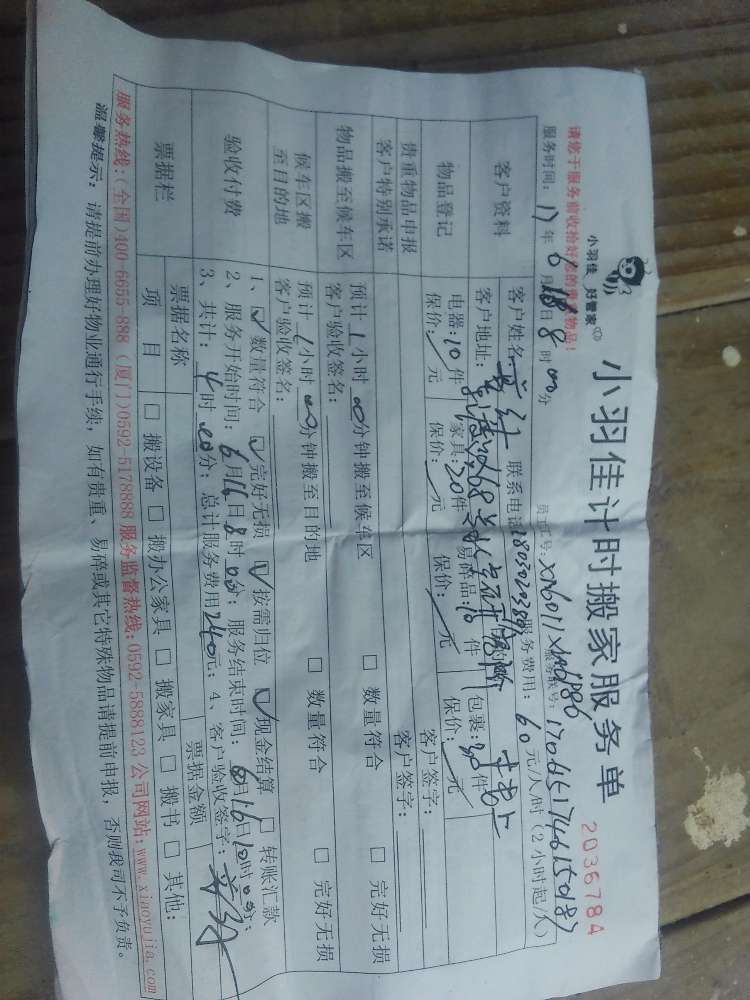 小羽佳 好管家
小羽佳计时搬家服务单
2036784
请您于服务前收拾好您的贵重物品!
员工号: 服务帐号:
服务时间: 17年6月16日8时00分
服务费用: 60元/人时(2小时起/人)
客户资料
客户姓名: 联系电话:
客户地址:
物品登记
电器:10件 家具:30件 易碎品:10件 包裹:30件
保价:/元 保价:/元 保价:/元 保价:/元
贵重物品申报
客户签字:
客户特别承诺
客户签字:
物品搬至候车区
预计1小时00分钟搬至候车区 □ 数量符合 □ 完好无损
客户验收签名:
候车区搬至目的地
预计1小时00分钟搬至目的地 □ 数量符合 □ 完好无损
客户验收签名:
验收付费
1、☑ 数量符合 ☑ 完好无损 ☑ 按需归位 ☑ 现金结算 □ 转账汇款
2、服务开始时间: 6月16日8时00分; 服务结束时间: 6月16日10时00分;
3、共计: 4时00分; 总计服务费用240元; 4、客户验收签字:
票据栏
票据名称 票据金额
项 目 □ 搬设备 □ 搬办公家具 □ 搬家具 □ 搬书 □ 其他:
服务热线:(全国)400-6655-888 (厦门)0592-5178888 服务监督热线:0592-5888123 公司网站:www.xiaoyujia.com
温馨提示: 请提前办理好物业通行手续,如有贵重、易碎或其它特殊物品请提前申报,否则我司不予负责。